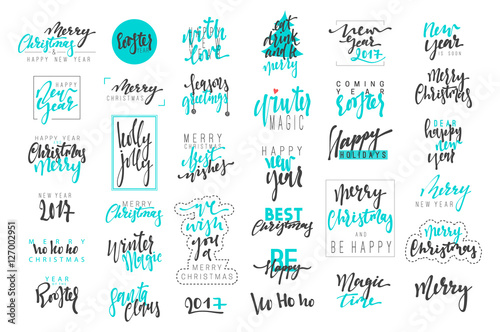 Merry
Christmas
& HAPPY NEW YEAR
Rooster
YEAR
with
love
eat
drink and
merry
New
year
2017
New
year
IS SOON
HAPPY
New
Year
Merry
CHRISTMAS
Seasons
greetings
winter
MAGIC
COMING
YEAR
rooster
Merry
Christmas
HAPPY YEAR
Christmas
Merry
holly
jolly
MERRY
CHRISTMAS
Best
wishes
HAPPY
new
year
Happy
HOLIDAYS
DEAR
happy
new
year
NEW YEAR
2017
Merry
Christmas
we
wish
you
a
MERRY
CHRISTMAS
BEST
Christmas
Merry
Christmas
AND
BE HAPPY
Merry
NEW YEAR
MERRY
Ho Ho Ho
CHRISTMAS
Winter
Magic
BE
Happy
Merry
Christmas
YEAR
Rooster
Santa
Claus
2017
Ho Ho Ho
Magic
Time
Merry
Adobe Stock | #127002951